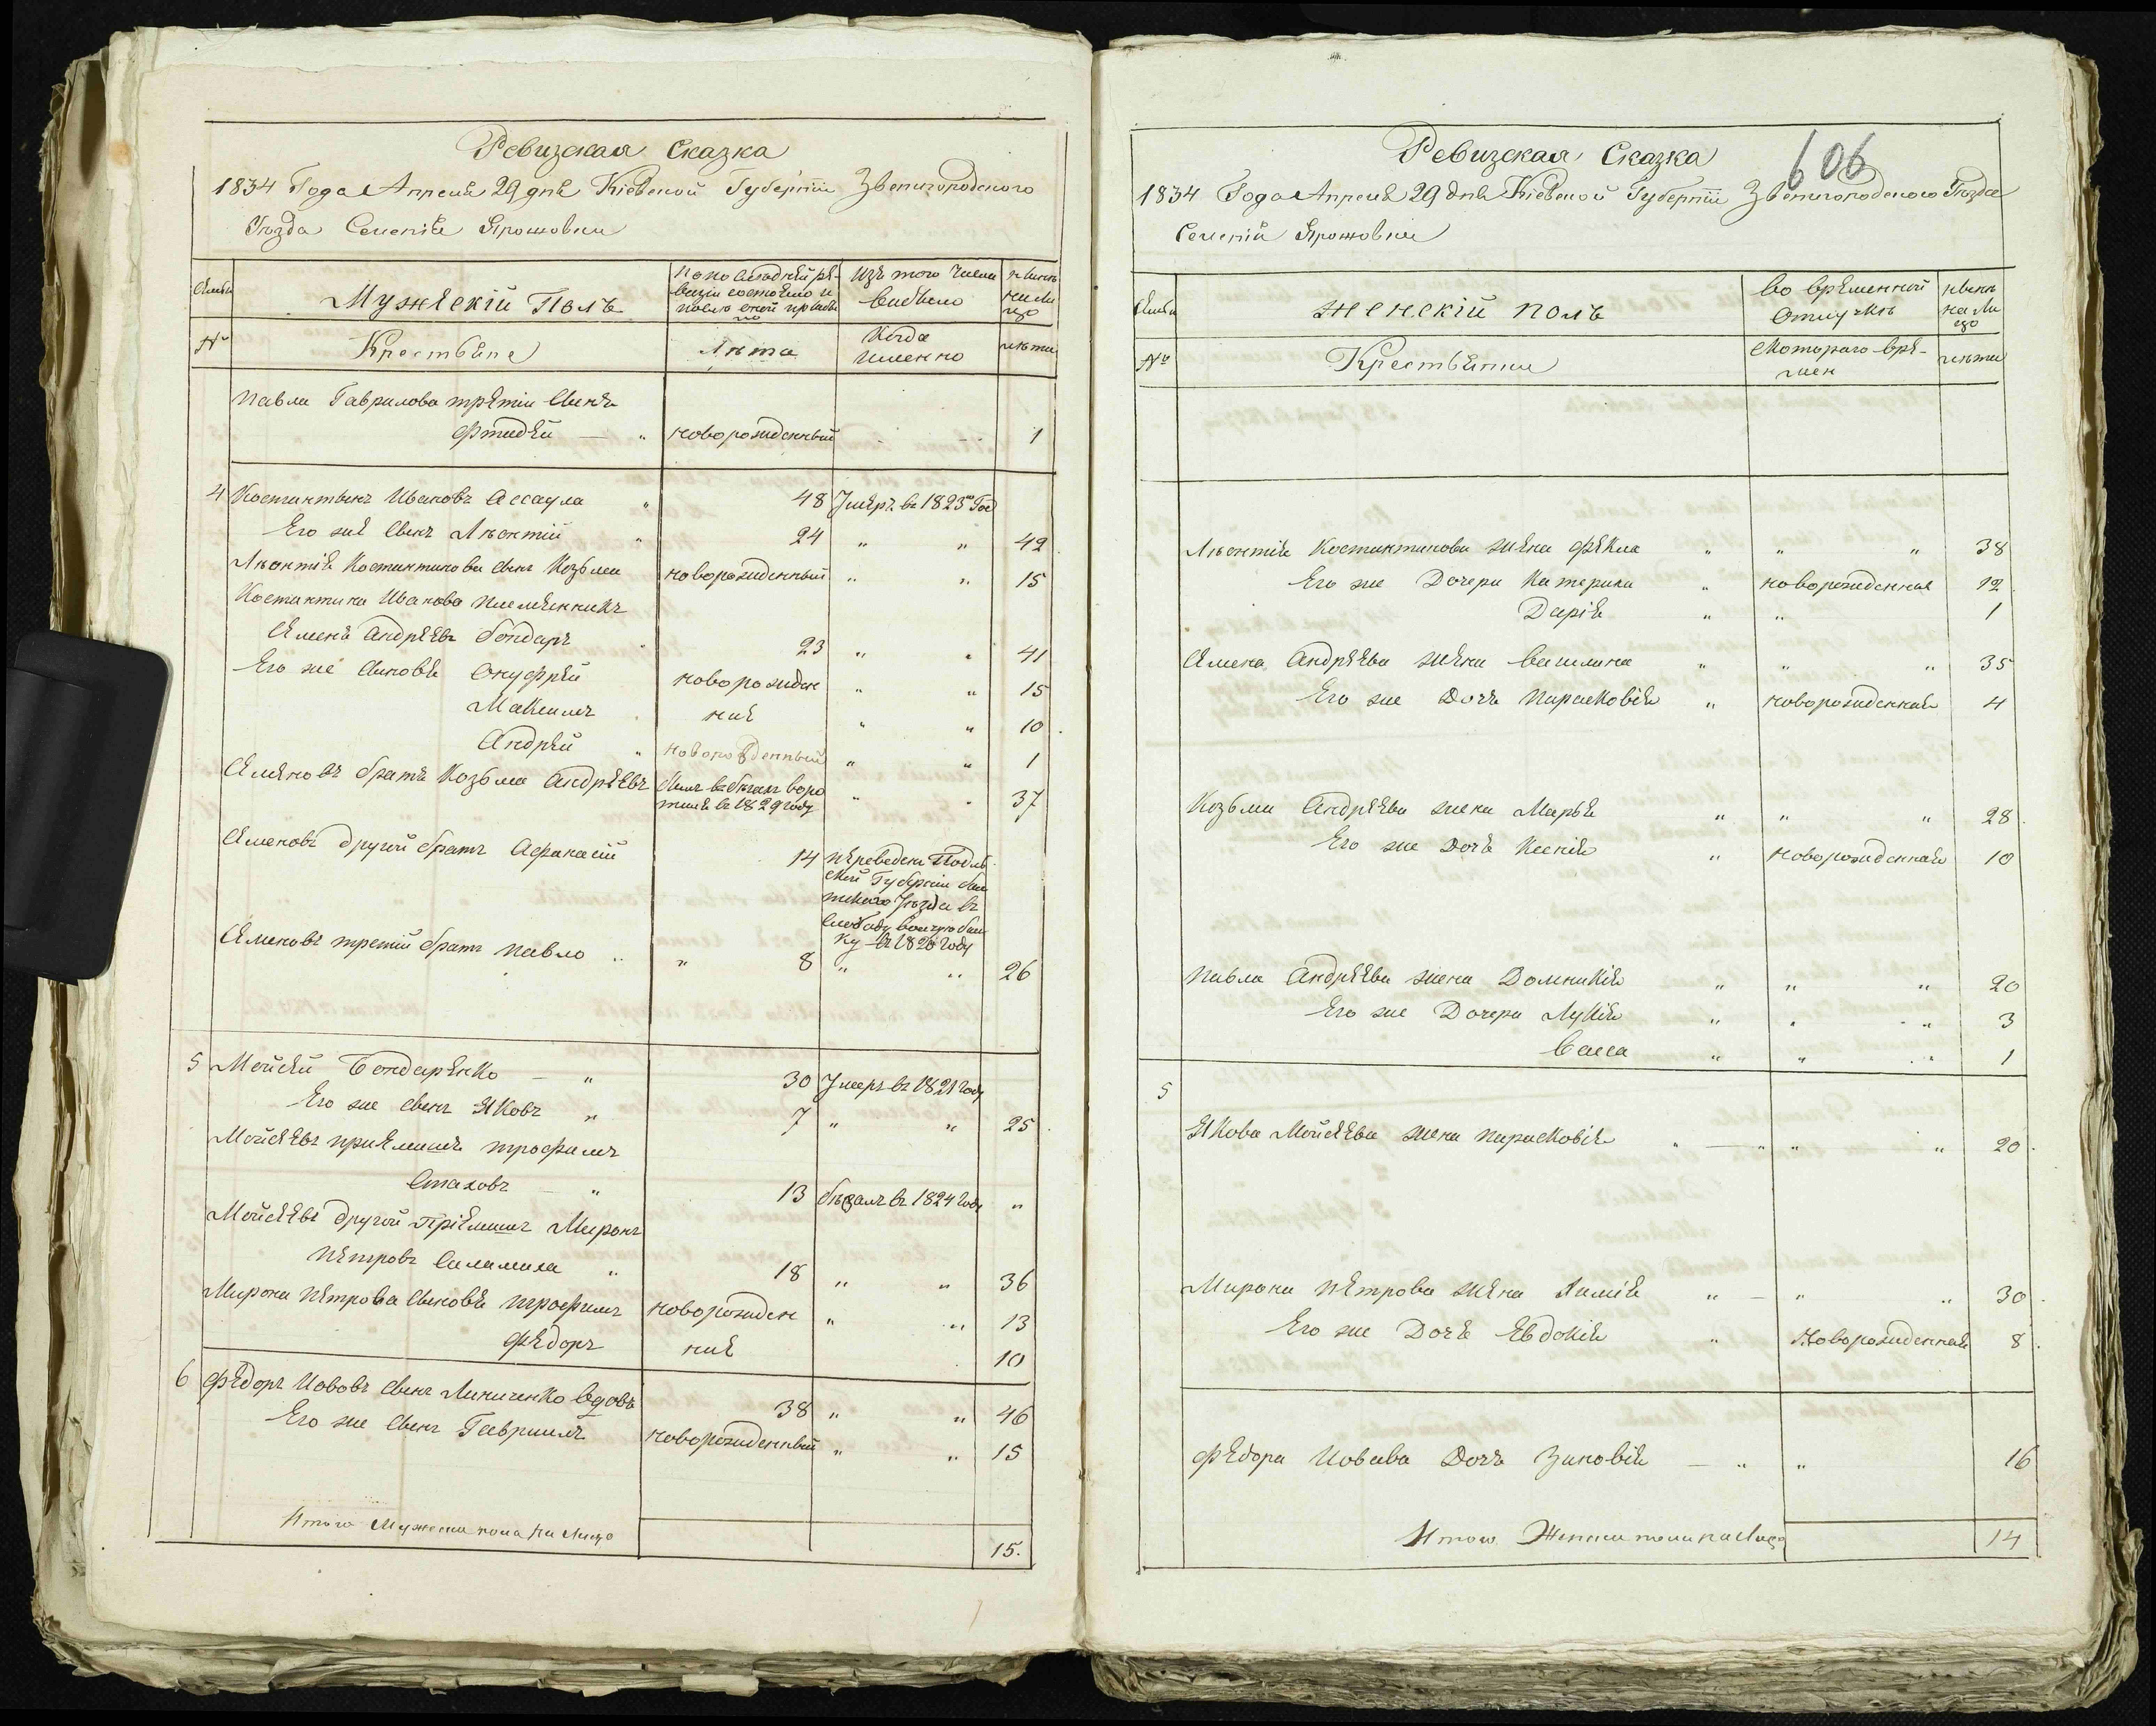 Ревизская Сказка
1834 Года Апреля 29 дня Кіевской Губерніи Звенигородского
Уезда Селенія Ярошовки
Мужескій Полъ
По последней ре-
визіи состояло и
после оной прибыло
Изъ того числа
выбыло
ныне
на ли
цо
№
Крестьяне
Лѣта
Когда
именно
лѣта
Павла Гаврилова третій сынъ
Фтидей — " новорожденный 1
4 Костантынъ Ивановъ Ассаула " 48 Умеръ въ 1823мъ Год
Его же сынъ Лѣонтій " 24 " " 42
Лѣонтія Костантинова сынъ Козьма новорожденный " " 15
Костантина Иванова племенникъ
Семенъ Андрѣевъ Бондаръ 23 " " 41
Его же сыновья Онуфрей новорожден " " 15
Максимъ ние " " 10
Андрей " новорожденный " " 1
Семеновъ братъ Козьма Андрѣевъ былъ въ бѣгахъ воро
тился въ 1829 году " " 37
Семеновъ другой братъ Афанасій 14 переведенъ Подоль
ской Губерніи Бал
тского уезда въ
слободу
ку въ 1826 году
Семеновъ третій братъ Павло " " 8 " " 26
5 Мойсей Бондаренко — " 30 Умеръ въ 1821 году
Его же сынъ Яковъ " 7 " " 25
Мойсеевъ приемышъ Трофимъ
Стаховъ — " 13 бѣжалъ въ 1824 году "
Мойсеевъ другой пріемышъ Миронъ
Петровъ Саламаха " 18 " " 36
Мирона Петрова сыновья Трофимъ новорожден " " 13
Федоръ ние 10
6 Федоръ Иововъ сынъ Линиченко вдовъ 38 " " 46
Его же сынъ Гавриилъ новорожденный " " 15
Итого Мужеска пола на Лицо 15.
606
Ревизская Сказка
1834 Года Апреля 29 дня Кіевской Губерніи Звенигородского Уезда
Селенія Ярошовки
Женскій полъ
Во временной
отлучкѣ
ныне
на ли
цо
№
Крестьянки
Скоторого вре-
мен
лѣта
Лѣонтія Костантинова жена Фекла " " " 38
Его же Дочери Катерина " новорожденная 12
Дарія " " 1
Семена Андрѣева жена Василина " " " 35
Его же Дочь Парасковія " новорожденная 4
Козьмы Андрѣева жена Марья " " " 28
Его же Дочь Ксенія " новорожденная 10
Павла Андрѣева жена Домникія " " " 20
Его же Дочери Лукія " " " 3
Васса " " " 1
5
Якова Мойсеева жена Парасковія " — " " " 20
Мирона Петрова жена " — " " 30
Его же Дочь Евдокія " Новорожденная 8
Федора Иовава Дочь Зиновія — " " 16
Итого Женска пола на Лицо 14